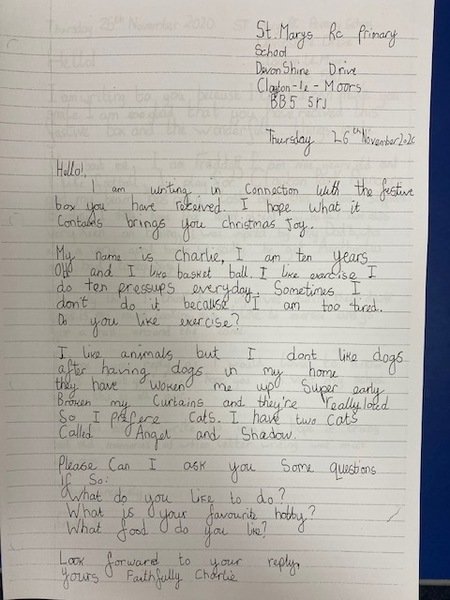 St. Marys Rc Primary
School
DevonShine Drive
Clayton-le-Moors
BB5 5RJ
Thursday 26th November 2020
Hello!,
I am writing in Connection with the festive
box you have received. I hope what it
Contains brings you christmas Joy.
My name is charlie, I am ten years
Old and I like basket ball. I like exercise I
do ten pressups everyday. Sometimes I
don't do it because I am too tired.
Do you like exercise?
I like animals but I dont like dogs
after having dogs in my home
they have woken me up Super early
Broken my Curtains and they're really loud
So I prefere Cats. I have two cats
Called Angel and Shadow.
Please Can I ask you Some questions
If So:
What do you like to do?
What is your favourite hobby?
What food do you like?
Look forward to your reply,
yours Faithfully Charlie